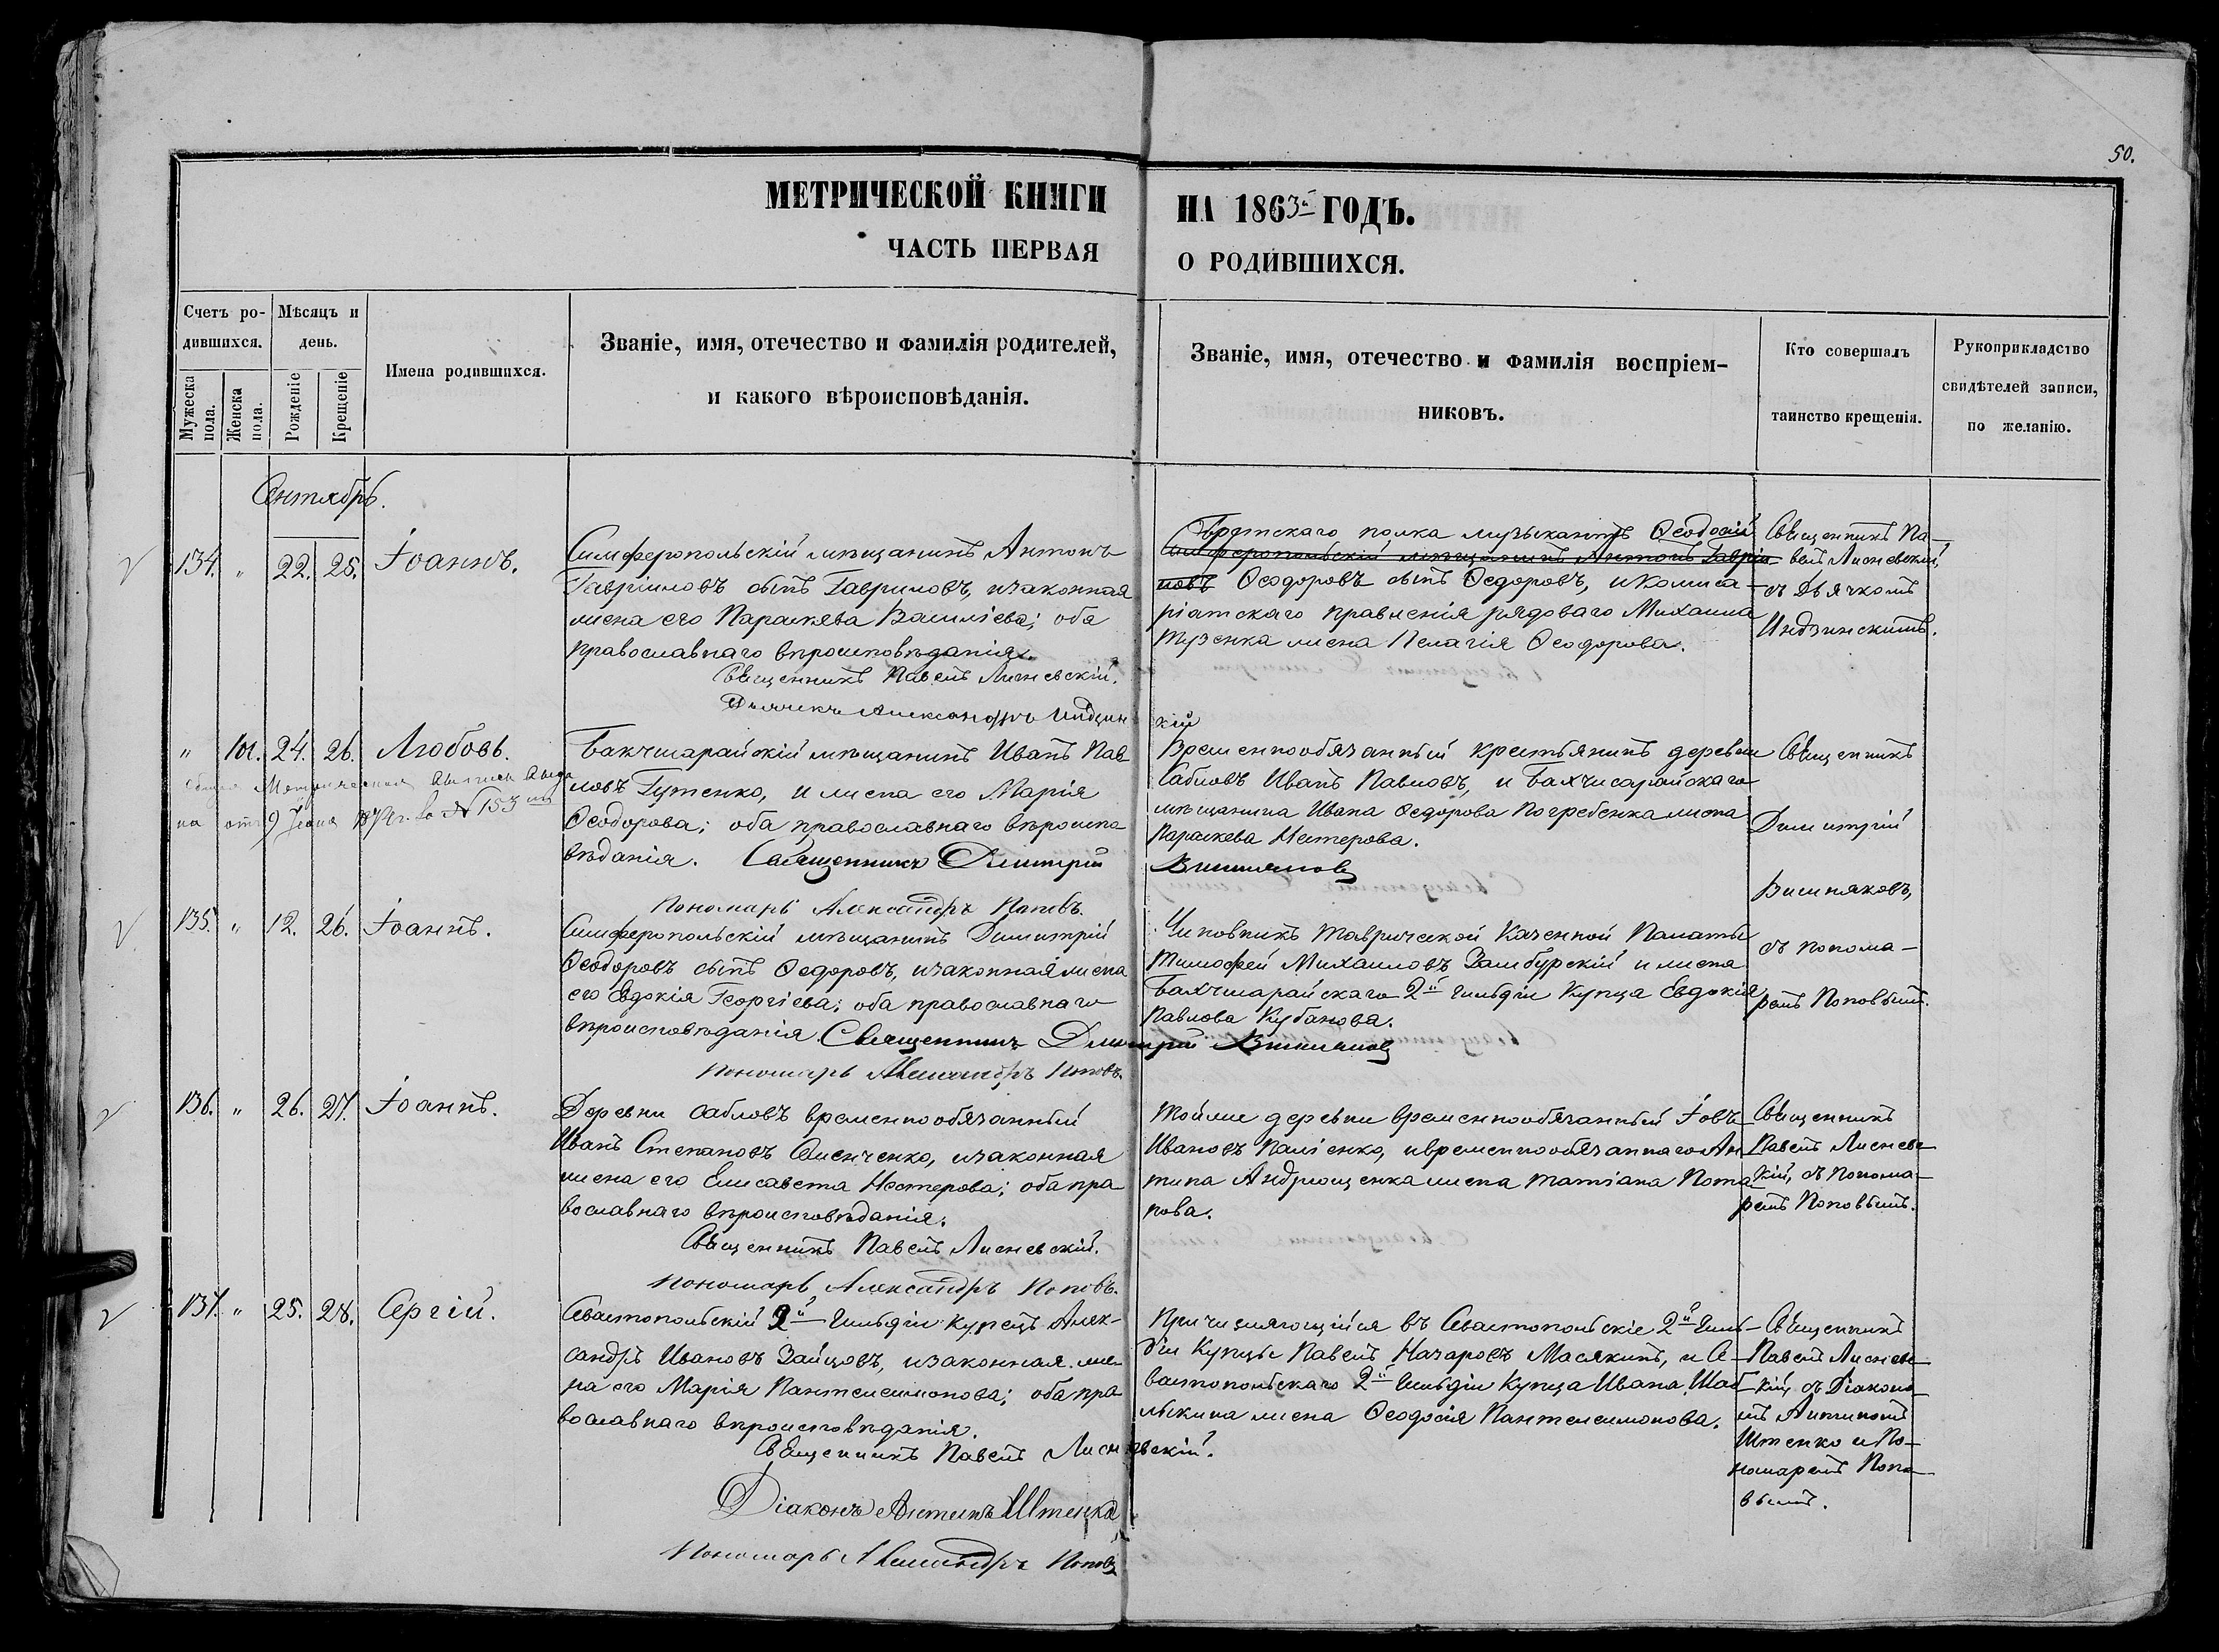 50.
МЕТРИЧЕСКОЙ КНИГИ НА 1863й ГОДЪ.
ЧАСТЬ ПЕРВАЯ О РОДИВШИХСЯ.
Счетъ ро-
дившихся.
Мужеска
пола.
Женска
пола.
Мѣсяцъ и
день.
Рожденіе
Крещеніе
Имена родившихся.
Званіе, имя, отечество и фамилія родителей,
и какого вѣроисповѣданія.
Званіе, имя, отечество и фамилія воспріем-
никовъ.
Кто совершалъ
таинство крещенія.
Рукоприкладство
свидѣтелей записи,
по желанію.
Сентябрь.
134. " 22. 25. Іоаннъ.
Симферопольскій мѣщанинъ Антонъ
Гавріиловъ сынъ Гавриловъ, и законная
жена его Параскева Василіева; оба
православнаго вѣроисповѣданія.
Священникъ Павелъ Лисневскій.
Дьячекъ Александръ Индзинскій
полка музыкантъ Ѳеодосій
Симферопольскій мѣщанинъ Антонъ Гаврі-
ловъ Ѳеодоровъ сынъ Ѳедоровъ, и комиса-
ріатскаго правленія рядоваго Михаила
Тузенка жена Пелагія Ѳеодорова.
Священникъ Па-
велъ Лисневскій,
съ Дьячкомъ
Индзинскимъ.
" 101. 24. 26. Любовь.
Метрическая
на отъ 9 г. за № 153
Бакчисарайскій мѣщанинъ Иванъ Пав-
ловъ Гутенко, и жена его Марія
Ѳеодорова; оба православнаго вѣроиспо-
вѣданія. Священникъ Дмитрій Вишняковъ
Пономарь Александръ Поповъ.
Временнообязанный крестьянинъ деревни
Сабловъ Иванъ Павловъ, и Бахчисарайскаго
мѣщанина Ивана Ѳедорова Погребенка жена
Параскева Нестерова.
Священникъ
Димитрій
Вишняковъ,
съ понома-
ремъ Поповымъ.
135. " 12. 26. Іоаннъ.
Симферопольскій мѣщанинъ Димитрій
Ѳеодоровъ сынъ Ѳедоровъ, и законная жена
его Евдокія Георгіева; оба православнаго
вѣроисповѣданія. Священникъ Дмитрій Вишняковъ
Пономарь Александръ Поповъ.
Чиновникъ Таврической Казенной Палаты
Тимофей Михаиловъ Замбурскій и жена
Бахчисарайскаго 2й гильдіи Купца Евдокія
Павлова Кубанова.
136. " 26. 27. Іоаннъ.
Деревни Сабловъ временнообязанный
Иванъ Степановъ Семченко, и законная
жена его Елисавета Нестерова; оба пра-
вославнаго вѣроисповѣданія.
Священникъ Павелъ Лисневскій.
Пономарь Александръ Поповъ.
Той же деревни временнообязанный Іовъ
Ивановъ Паліенко, и временнообязаннаго Ан-
типа Андрющенка жена Татіана Пота-
пова.
Священникъ
Павелъ Лисневс-
кій, съ понома-
ремъ Поповымъ.
137. " 25. 28. Сергій.
Севастопольскій 2й гильдіи купецъ Алек-
сандръ Ивановъ Зайцовъ, и законная же-
на его Марія Пантелеимонова; оба пра-
вославнаго вѣроисповѣданія.
Священникъ Павелъ Лисневскій.
Діаконъ Антипъ Штенко
Пономарь Александръ Поповъ
Причисляющійся въ Севастопольскіе 2й гиль-
діи Купцы Павелъ Назаровъ Масякинъ, и Се-
вастопольскаго 2й гильдіи Купца Ивана Шаб-
лыкина жена Ѳеодосія Пантелеимонова.
Священникъ
Павелъ Лисневс-
кій, съ Діаконо-
мъ Антипомъ
Штенко и По-
номаремъ Попо-
вымъ.